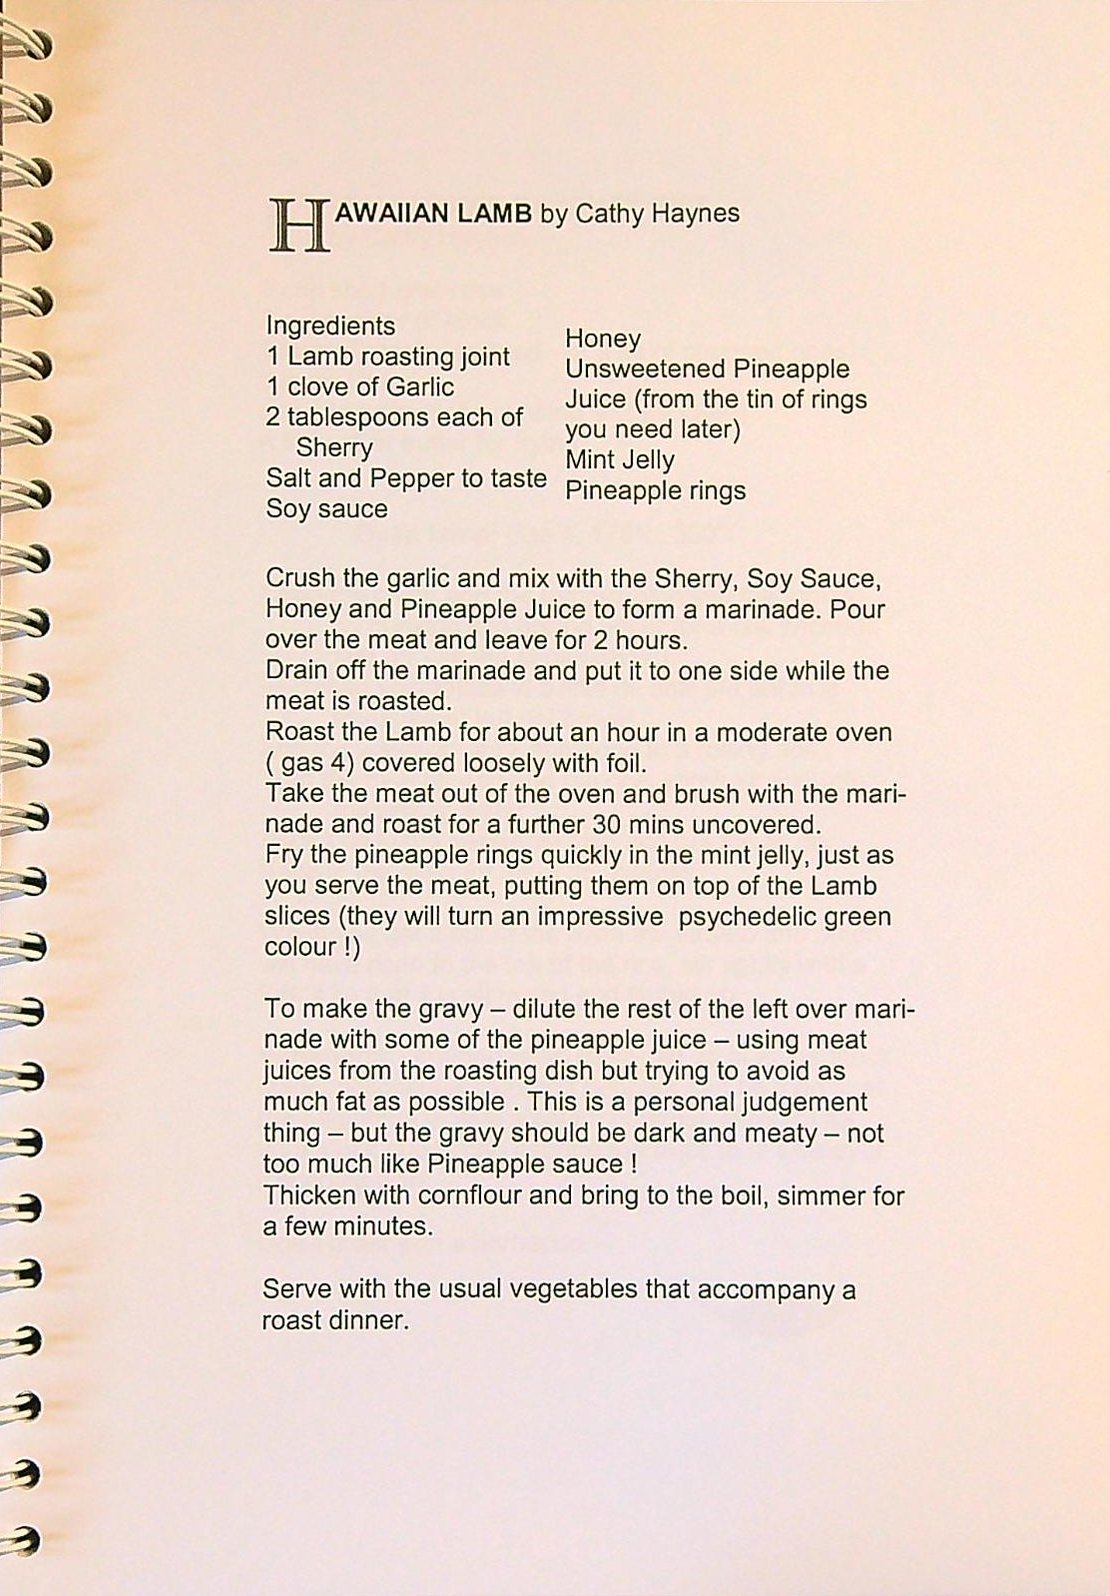 HAWAIIAN LAMB by Cathy Haynes
Ingredients
1 Lamb roasting joint
1 clove of Garlic
2 tablespoons each of
Sherry
Salt and Pepper to taste
Soy sauce
Honey
Unsweetened Pineapple
Juice (from the tin of rings
you need later)
Mint Jelly
Pineapple rings
Crush the garlic and mix with the Sherry, Soy Sauce,
Honey and Pineapple Juice to form a marinade. Pour
over the meat and leave for 2 hours.
Drain off the marinade and put it to one side while the
meat is roasted.
Roast the Lamb for about an hour in a moderate oven
( gas 4) covered loosely with foil.
Take the meat out of the oven and brush with the mari-
nade and roast for a further 30 mins uncovered.
Fry the pineapple rings quickly in the mint jelly, just as
you serve the meat, putting them on top of the Lamb
slices (they will turn an impressive  psychedelic green
colour !)
To make the gravy – dilute the rest of the left over mari-
nade with some of the pineapple juice – using meat
juices from the roasting dish but trying to avoid as
much fat as possible . This is a personal judgement
thing – but the gravy should be dark and meaty – not
too much like Pineapple sauce !
Thicken with cornflour and bring to the boil, simmer for
a few minutes.
Serve with the usual vegetables that accompany a
roast dinner.